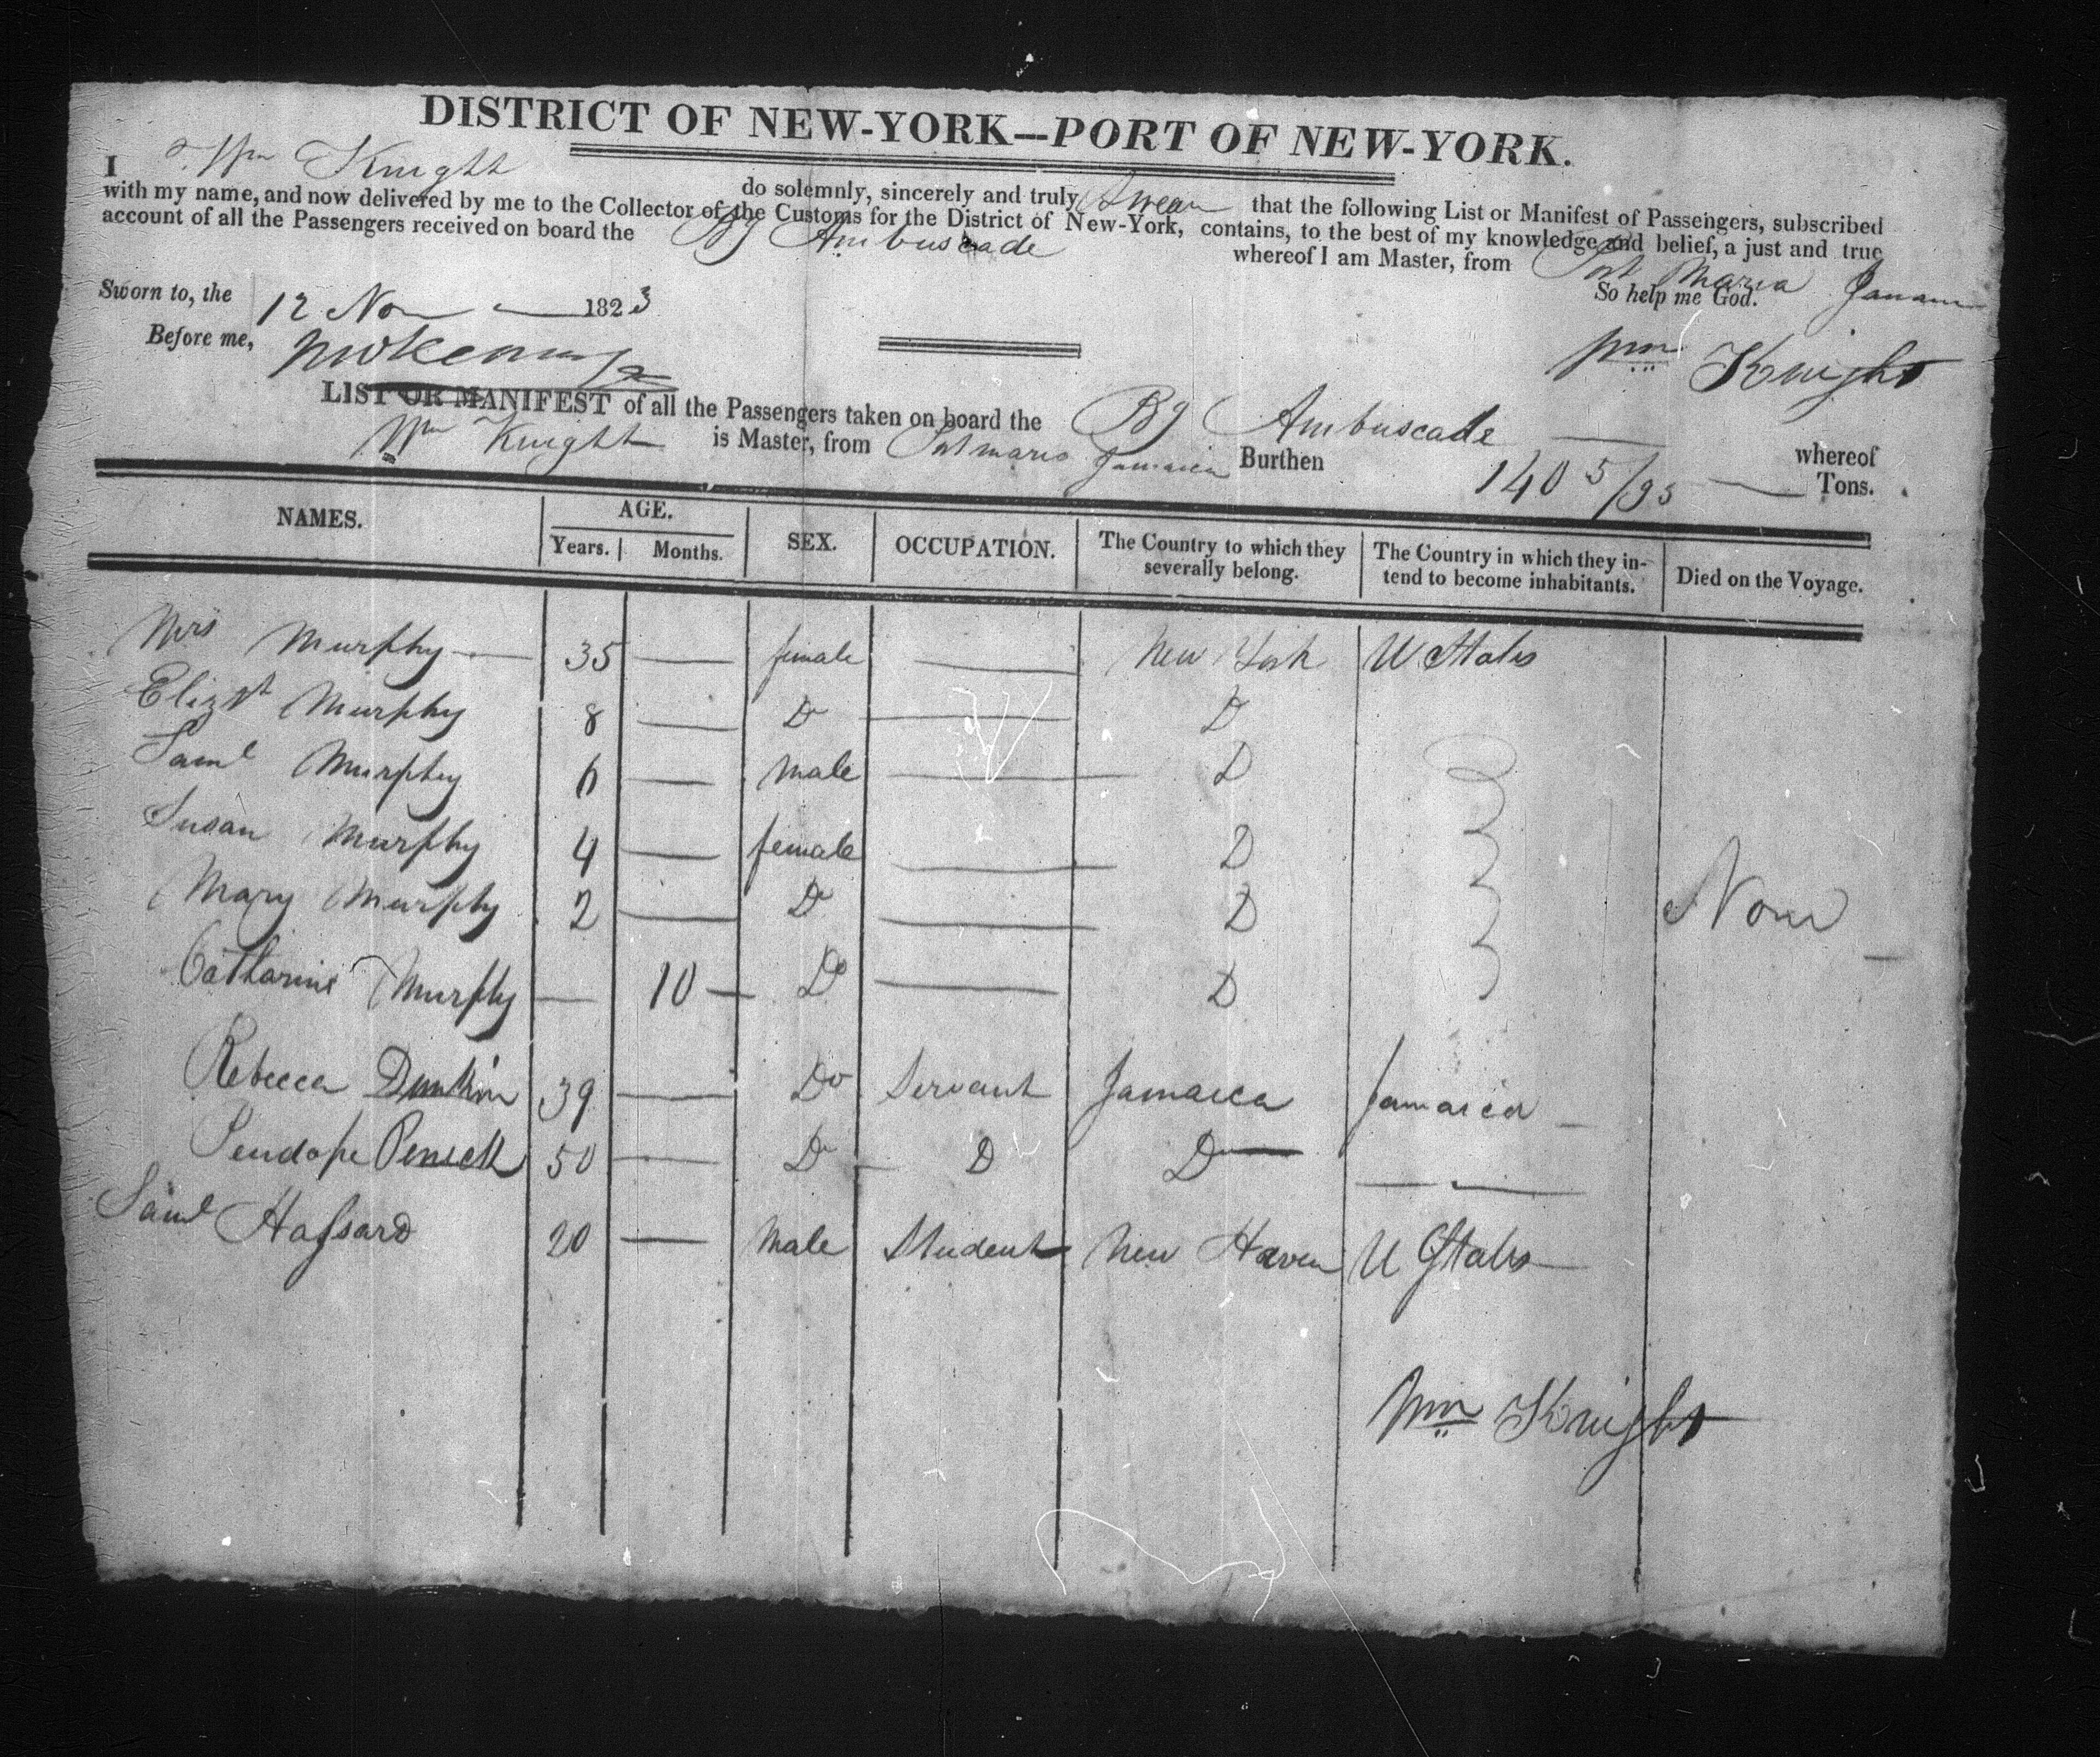 DISTRICT OF NEW-YORK—PORT OF NEW-YORK.
I Wm Knight do solemnly, sincerely and truly Swear that the following List or Manifest of Passengers, subscribed
with my name, and now delivered by me to the Collector of the Customs for the District of New-York, contains, to the best of my knowledge and belief, a just and true
account of all the Passengers received on board the Bg Ambuscade whereof I am Master, from Port Maria
So help me God.
Sworn to, the 12 Nov 1823
Before me,
Wm Knight
LIST OR MANIFEST of all the Passengers taken on board the Bg Ambuscade whereof
Wm Knight is Master, from Jamaica Burthen 140 5/95 Tons.
NAMES. AGE. SEX. OCCUPATION. The Country to which they severally belong. The Country in which they intend to become inhabitants. Died on the Voyage.
Years. Months.
Mrs Murphy 35 — female — New York U States
Elizt Murphy 8 — Do — D
Saml Murphy 6 — male — D
Susan Murphy 4 — female — D
Mary Murphy 2 — Do — D None
Catharine Murphy — 10 — Do — D
Rebecca Dunkin 39 — Do Servant Jamaica Jamaica
Penelope 50 — Do D D —
Saml Hassard 20 — Male Student New Haven U States
Wm Knight